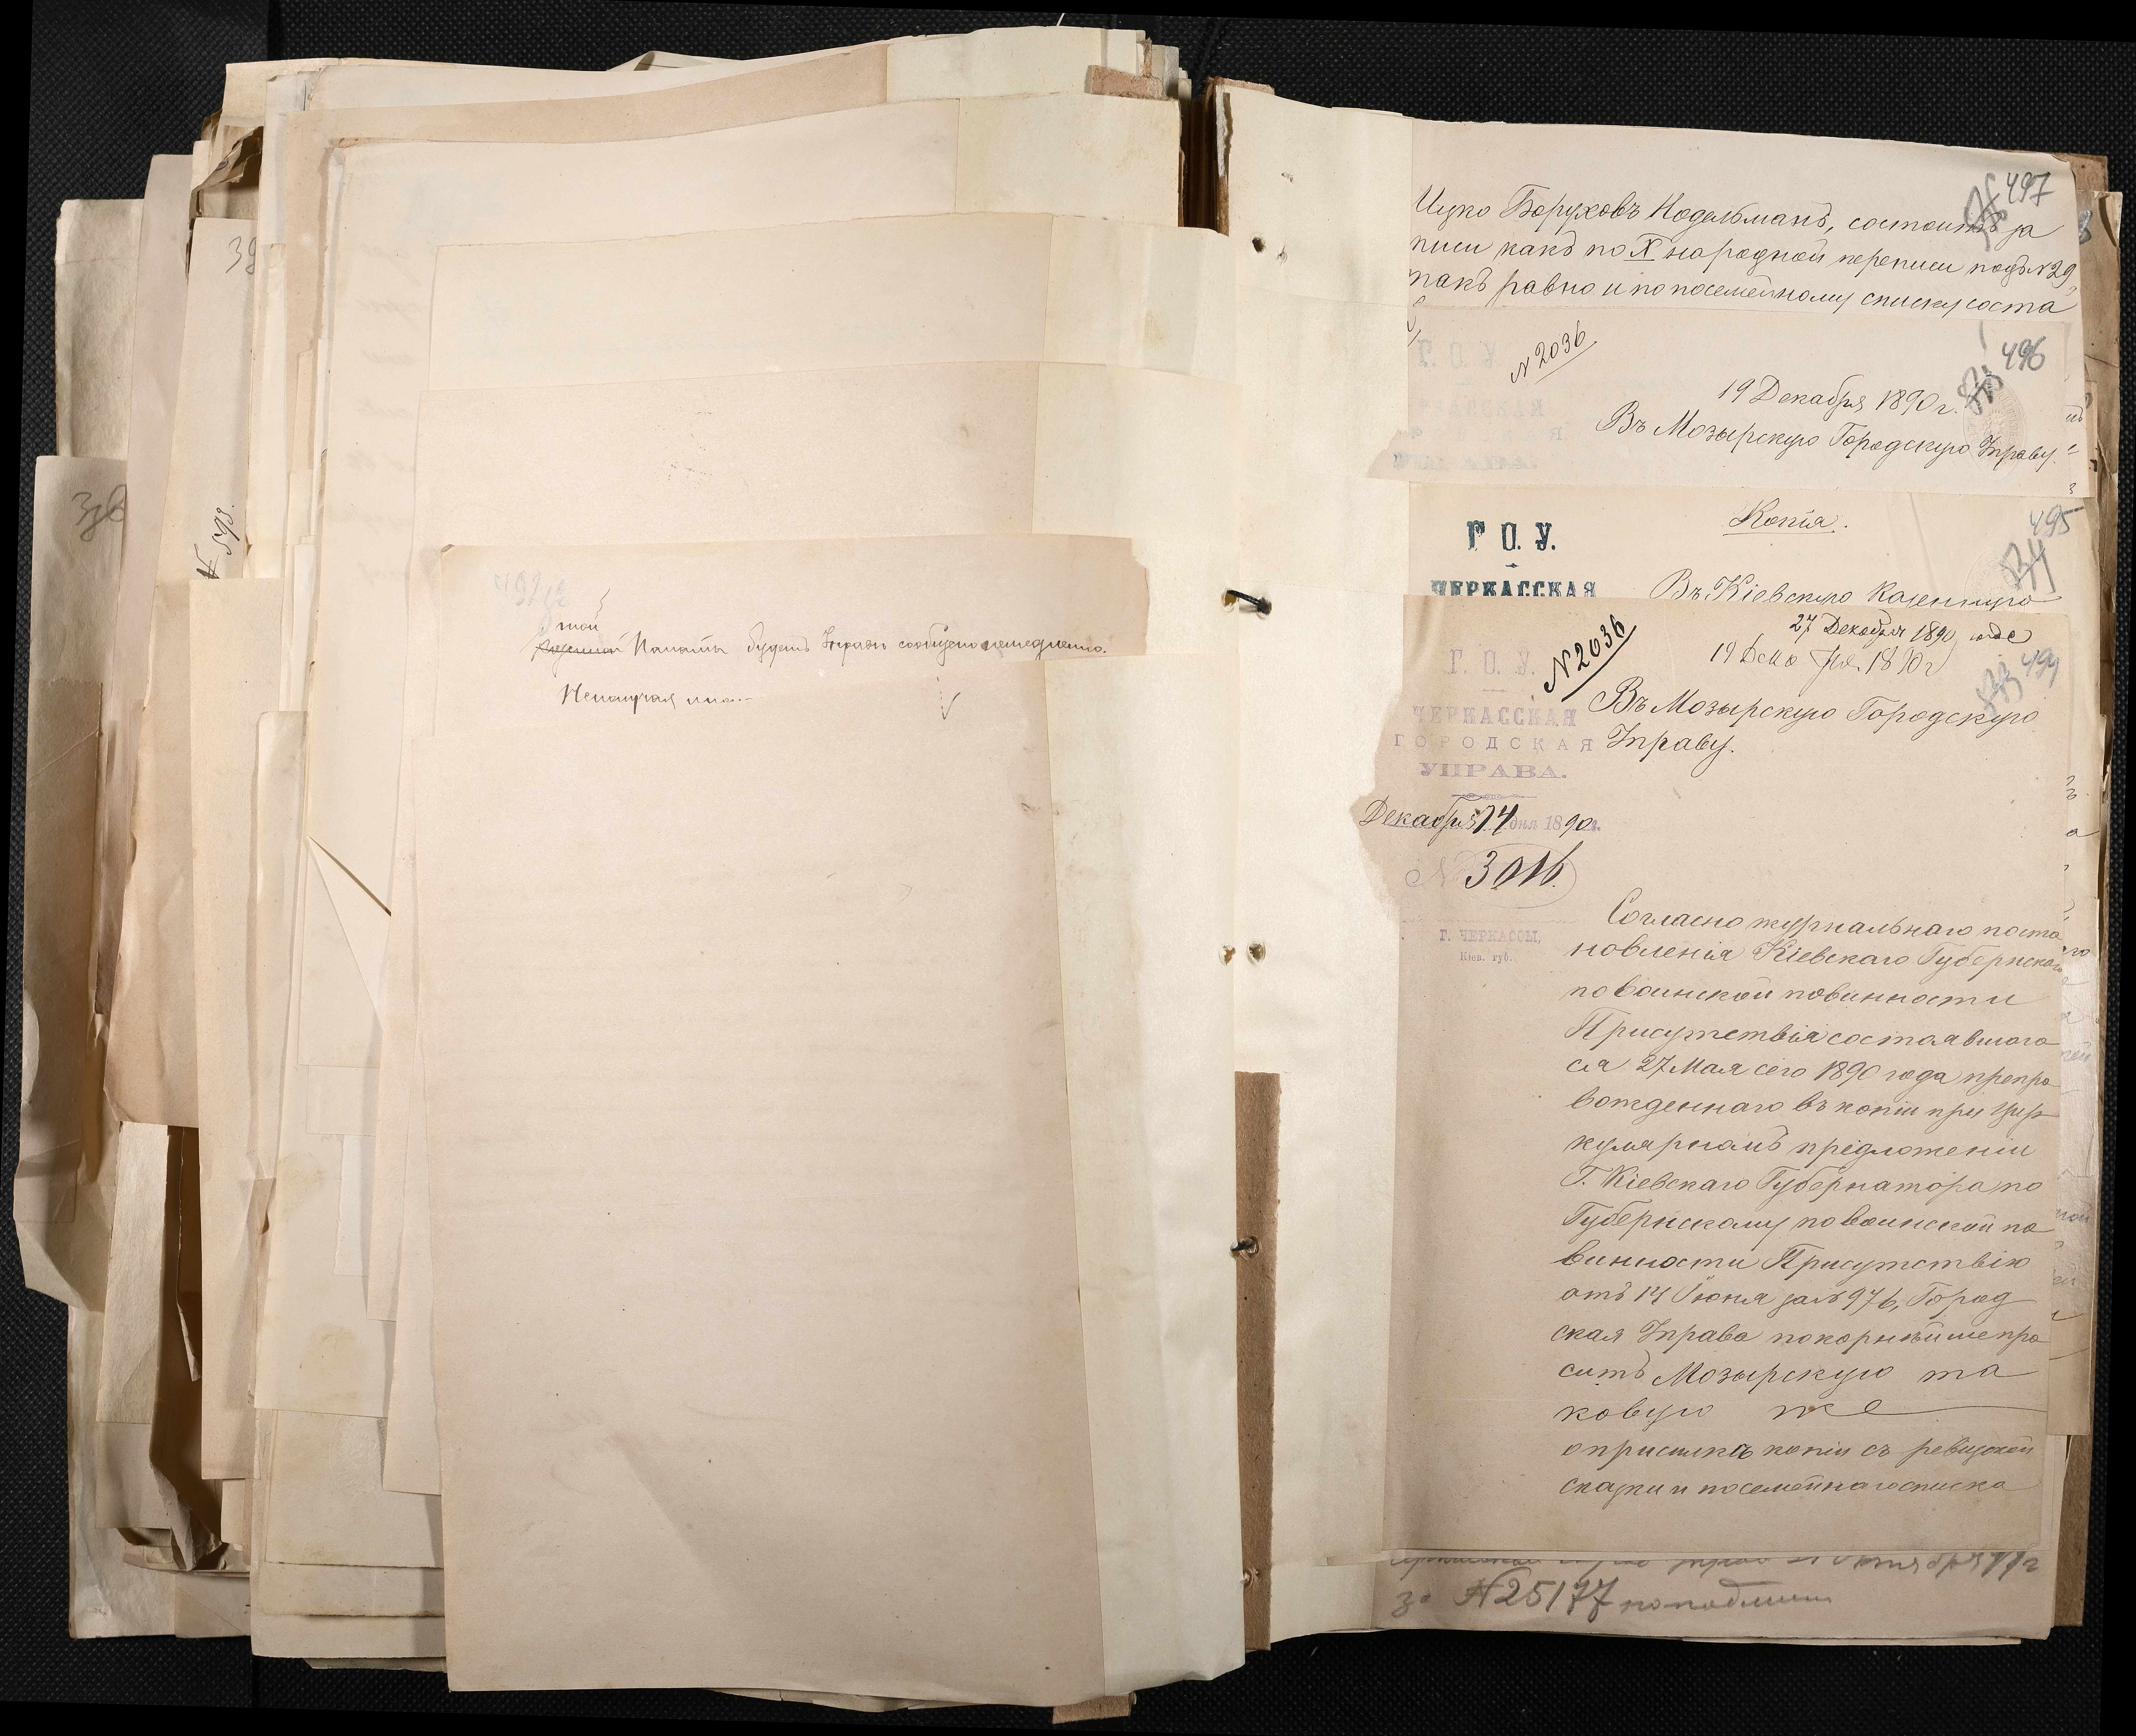 39
398
№ 593.
той
Казенной Палаты будетъ Управѣ сообщено немедленно.
497
Ицко Боруховъ Нодельманъ, состоитъ за
писи какъ по X народной переписи подъ №29,
такъ равно и по посемейному списку соста
№ 2036
496
19 Декабря 1890 г.
Въ Мозырскую Городскую Управу.
495
Копія.
Г. О. У.
ЧЕРКАССКАЯ
Въ Кіевскую Казенную
27 Декабря 1890 года
19 Декабря 1890 г
494
№ 2036
Г. О. У.
ЧЕРКАССКАЯ
ГОРОДСКАЯ
УПРАВА.
Въ Мозырскую Городскую
Управу.
Декабря 14 дня 1890 г.
№ 3016.
Г. ЧЕРКАССЫ,
Кіев. губ.
Согласно журнальнаго поста
новленія Кіевскаго Губернскаго
по воинской повинности
Присутствія состоявшаго
ся 27 Мая сего 1890 года препро
вожденнаго въ копіи при цир
кулярномъ предложеніи
Г. Кіевскаго Губернатора по
Губернскому по воинской по
винности Присутствію
отъ 14 Іюня за № 976, Город
ская Управа покорнѣйше про
ситъ Мозырскую та
ковую же
о присылкѣ копіи съ ревизской
сказки и посемейнаго списка
за № 25177